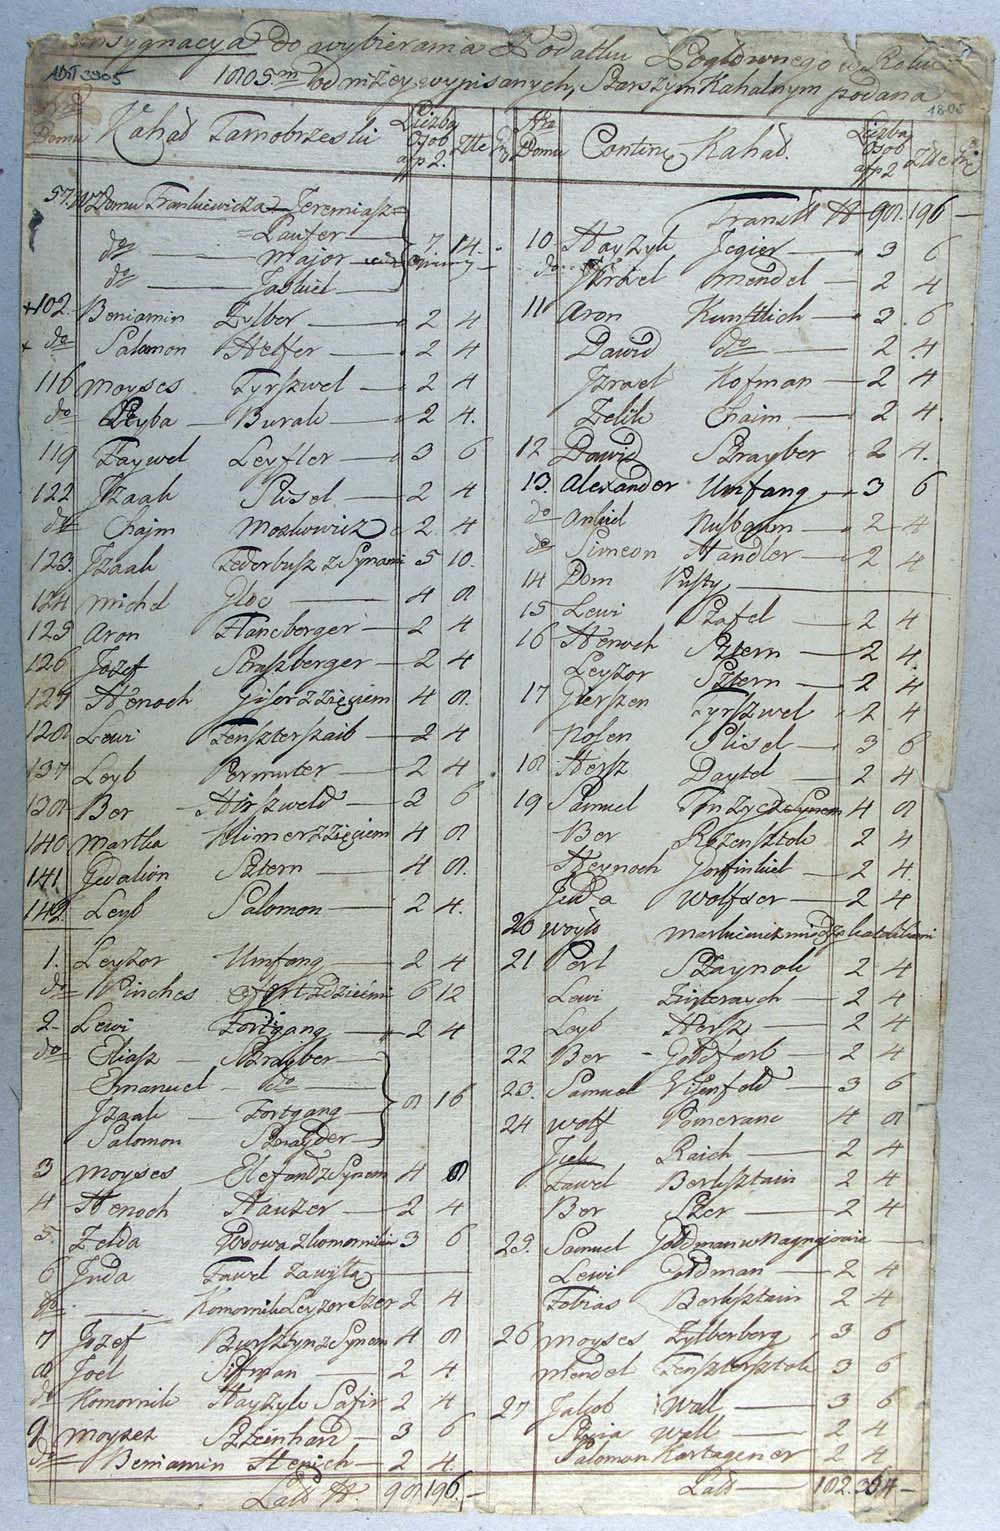 Konsygnacya do wybierania Podatku Pogłownego w Roku
1805m od niżey wypisanych, Starszym Kahalnym podana
ADT 3905
1805
Nro Domu Kahał Tarnobrzeski Liczba Osob Złte gr
57. W Domu Frankiewicza Jeremiasz
Laufer
do Major 7. 14.
do Jaskiel
+ 102. Beniamin Zylber 2 4
do Salomon Helfer 2 4
116 Moyses Tyrszwel 2 4
do Leyba Burak 2 4.
119 Faywel Leyfler 3 6
122 Jzaak Plisel 2 4
do Chajm Moszkowicz 2. 4
123. Jzaak Federbusz z Synami 5 10.
124 Michel Gloc 4 8
125 Aron Hancberger 2 4
126 Jozef Straszberger 2 4
127 Henoch Gisor z Zięciem 4 8.
128 Lewi Fenszterszaib 2 4
137 Leyb Permuter 2 4
138 Ber Hirszweld 3 6
140 Martka Klimer z Zięciem 4 8
141. Gedalion Sztern 4 8.
142 Leyb Salomon 2 4.
1. Leyzor Umfang 2 4
do Pinches Efort z Dziećmi 6 12
2. Lewi Fortgang 2 4
do Eliasz Szrayber
Emanuel do
Jzaak Fortgang 8 16
Salomon Sznayder
3 Moyses Elefand z Synem 4 8
4 Henoch Hauzer 2 4
5. Zelda Wdowa z komornikiem 3 6
6 Juda Fawel Zawiła
do Komornik Leyzor Szer 2 4
7 Jozef Bursztyn z Synem 4 8
8 Joel Sifman 2 4
do Komornik Hayzyk Safir 2 4
9 Moyzez Szteinhard 3 6
do Beniamin Henich 2 4.
Lato 98. 196.
Nro Domu Contin: Kahał. Liczba Osob Złte gr
Translt 98. 196
10 Hayzyk Jegier 3 6
do Jzrael Mendel 2 4
11 Aron Kunstlich 3 6
Dawid do 2 4
Jzrael Hofman 2 4
Zelik Chaim 2 4.
12 Dawid Szrayber 2 4.
13. Alexander Umfang 3 6
do Ankiel Nusbaum 2 4
do Simeon Handler 2 4
14 Dom Pusty
15 Lewi Szafel 2 4
16 Herszch Sztern 2 4.
Leyzor Sztern 2 4
17 Gierszen Tyrszwel 2 4
Nosen Plisel 3 6
18 Hersz Daytel 2 4
19 Samuel z Synem 4 8
Ber Rozensztok 2 4
Heynoch Gorfinkiel 2 4.
Juda Wolfser 2 4
20 Woyto między katolikami
21 Perl Sztaynok 2 4
Lewi 2 4
Leyb Hersz 2 4
22 Ber Goldfarb 2 4
23. Samuel Eisenfeld 3 6
24 Wolf Pomeranc 4 8
Jcek Raich 2 4
Fawel Berksztain 2 4
Ber Szer 2 4
25. Samuel Goldman w Magnezowie
Lewi Goldman 2 4
Tobias Berksztain 2 4
26 Moyses Zylberberg 3 6
Mendel Fensztersztok 3 6
27 Jakob Wall 3 6
Wall 2 4
Salomon Kartagener 2 4
Lato 182. 364